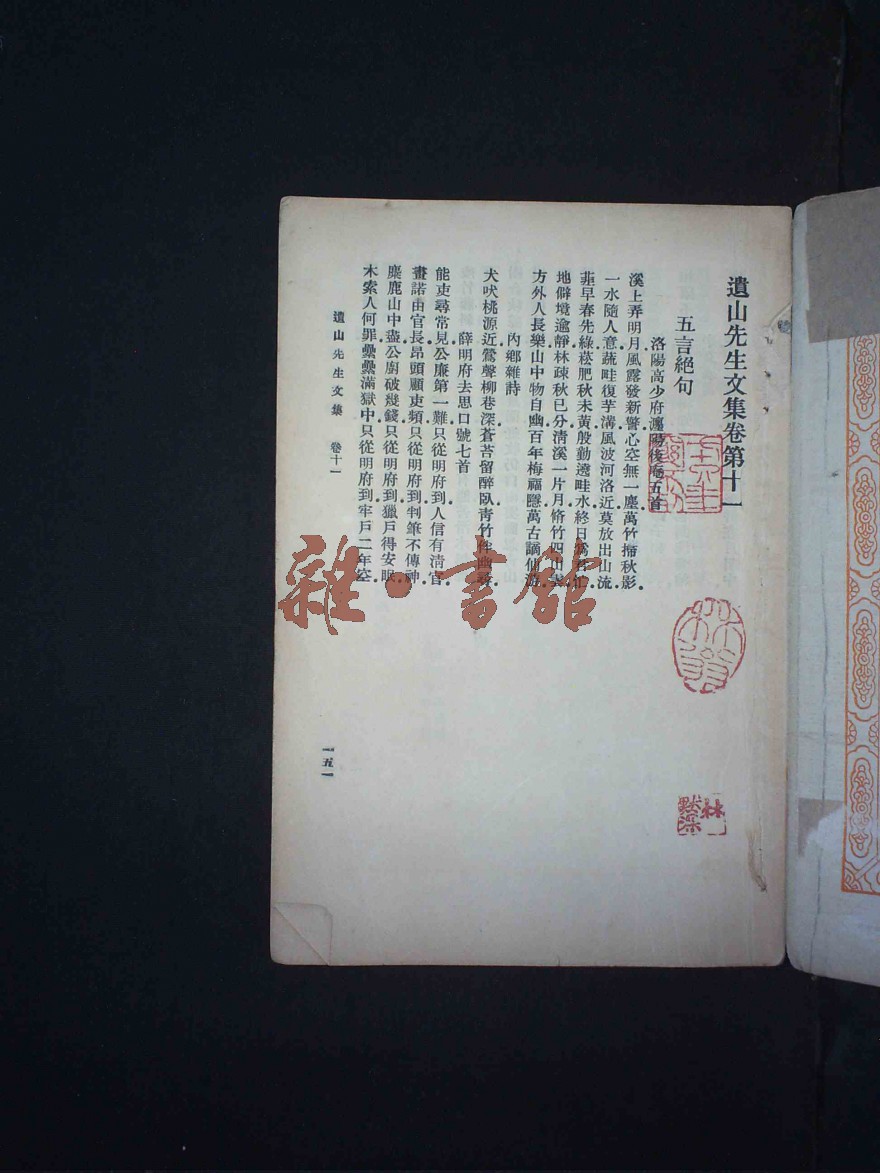 遺山先生文集卷第十一
五言絕句
洛陽高少府瀍陽後庵五首
溪上弄明月風露發新警心空無一塵萬竹掃秋影
一水隨人意蔬畦復芋溝風波河洛近莫放出山流
韮早春先綠菘肥秋未黃殷勤遶畦水終日爲君忙
地僻境逾靜林疎秋已分淸溪一片月脩竹四山雲
方外人長樂山中物自幽百年梅福隱萬古謫仙游
內鄉雜詩
犬吠桃源近鶯聲柳巷深蒼苔留醉臥靑竹伴幽尋
薛明府去思口號七首
能吏尋常見公廉第一難只從明府到人信有淸官
畫諾由官長昂頭顧吏頻只從明府到判筆不傳神
麋鹿山中盡公廚破幾錢只從明府到獵戶得安眠
木索人何罪纍纍滿獄中只從明府到牢戶二年空
遺山先生文集 卷十一
一五一
雜·書館
林
默
深